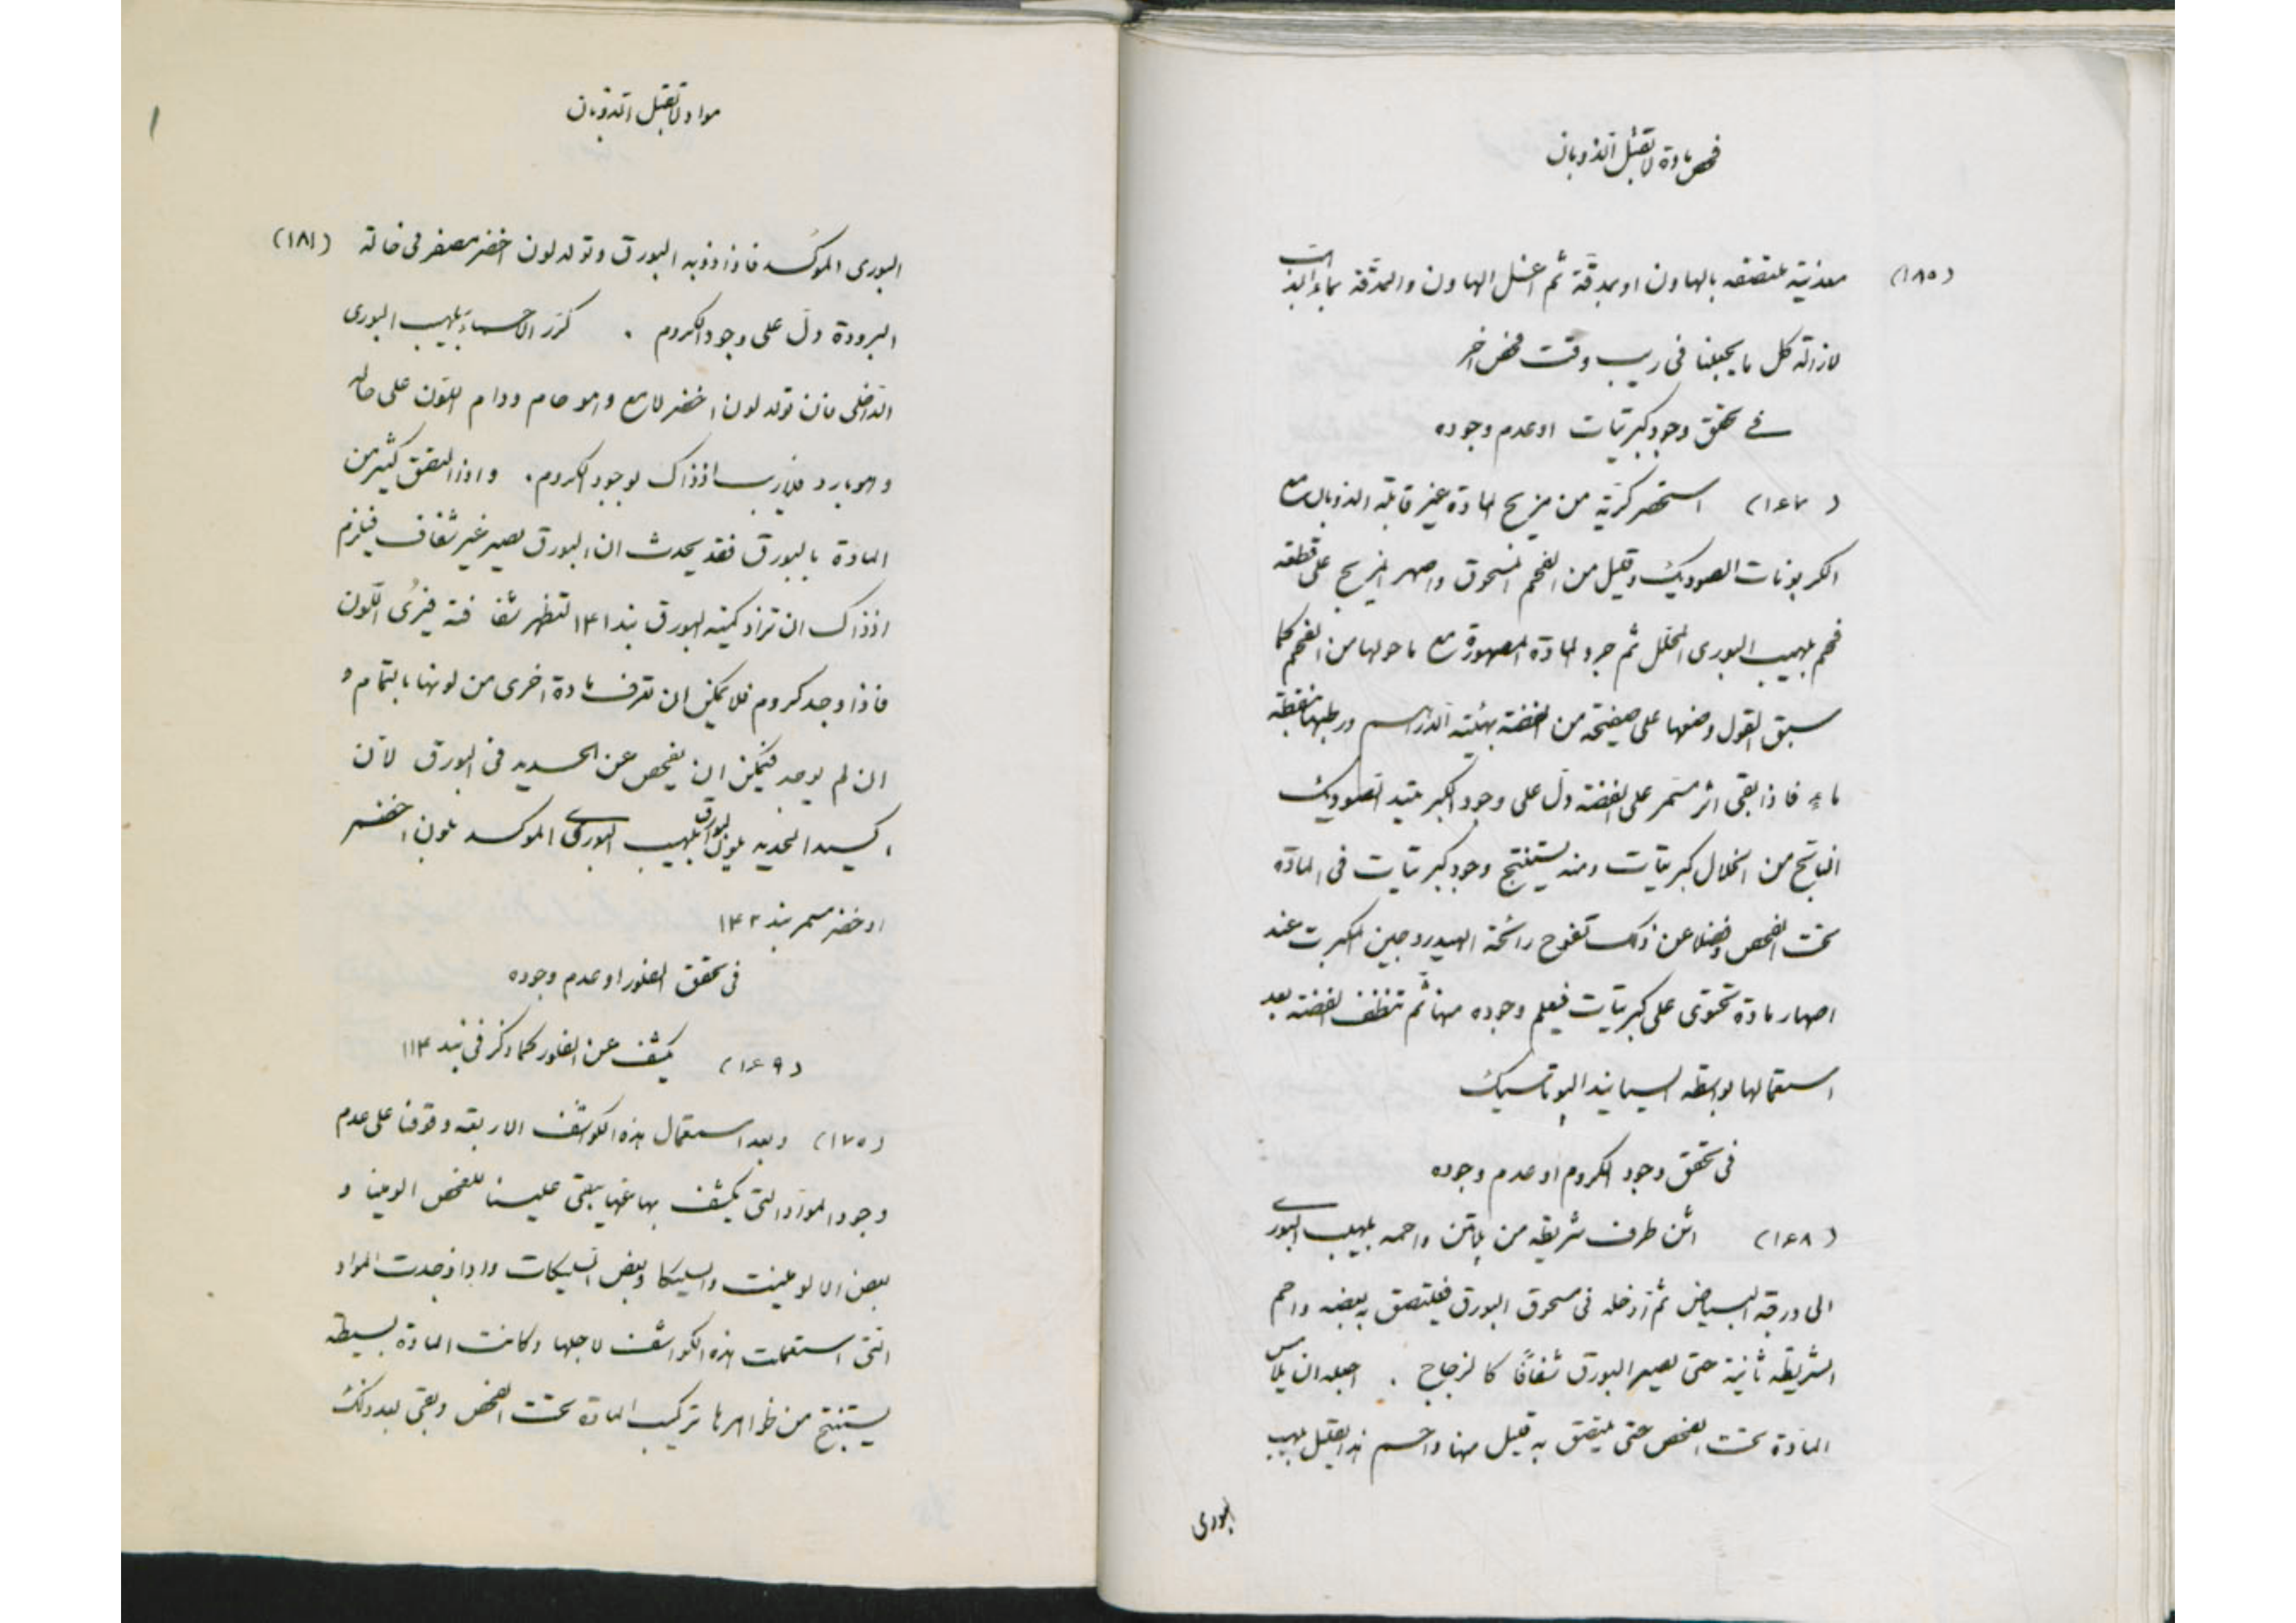 فحص مادة لا تقبل الذوبان
(١٨٥) معدنية ملتصقه بالهاون او بمدقّة ثم اغسل الهاون والمدقّة بماء
لازالة كل ما يجعلنا فى ريب وقت فحص اخر
فى تحقق وجود كبريتات او عدم وجوده
(١٤٧) استحضر كرّية من مزيج المادة غير قابلة الذوبان مع
الكربونات الصوديك وقليل من الفحم المسحوق واصهر المزيج على قطعة
فحم بلهيب البورى المحلّل ثم جرد المادة المصهورة مع ما حولها من الفحم كما
سبق القول وضعها على صفيحة من الفضة بهيئة الدراهم ورطبها بنقطة
ماء فاذا بقى اثر مسمر على الفضة دلّ على وجود الكبريتيد الصوديك
الناتج من انحلال كبريتات ومنه يستنتج وجود كبريتات فى المادة
تحت الفحص وفضلا عن ذلك تفوح رائحة الهيدروجين المكبرت عند
اصهار مادة تحتوى على كبريتات فيعلم وجوده منها ثم تنظف الفضة بعد
استعمالها بواسطه السيانيد البوتاسيك
فى تحقق وجود الكروم او عدم وجوده
(١٤٨) اثن طرف شريطه من پلاتن واحمه بلهيب البورى
الى درقة البياض ثم ادخله فى مسحوق البورق فيلتصق به بعضه واحم
الشريطه ثانية حتى يصير البورق شفافًا كالزجاج . اجعله ان يلامس
المادة تحت الفحص حتى يلتصق به قليل منها واحم هذا القليل بلهيب
البورى
مواد لا تقبل الذوبان
(١٨١) البورى الموكسد فاذا ذوبه البورق وتولد لون اخضر مصفر فى حالة
البرودة دلّ على وجود الكروم . كرّر الاحماء بلهيب البورى
الداخلى فان تولد لون اخضر لامع وهو حام ودام اللون على حاله
وهو بارد فلا ريب اذ ذاك لوجود الكروم . واذا التصق كثير من
المادة بالبورق فقد يحدث ان البورق يصير غير شفاف فيلزم
اذ ذاك ان تزاد كمية البورق بند ١٤١ لتظهر شفافته فيُرى اللّون
فاذا وجد كروم فلا يمكن ان تعرف مادة اخرى من لونها بالتمام و
ان لم يوجد فيمكن ان يفحص عن الحديد فى البورق لانّ
اكسيد الحديد يلون البورق بلهيب البورى الموكسد بلون اخضر
او خضر مسمر بند ١٤٢
فى تحقق الفلور او عدم وجوده
(١٤٩) يكشف عن الفلور كما ذكر فى بند ١١٤
(١٧٥) وبعد استعمال هذه الكواشف الاربعه وقوفنا على عدم
وجود المواد التى يكشف بها عنها يبقى علينا للفحص الومينا و
بعض الالومينت والسيليكا وبعض السليكات واذا وجدت المواد
التى استعملت هذه الكواشف لاجلها وكانت المادة بسيطه
يستنتج من ظواهرها تركيب المادة تحت الفحص وبقى بعد ذلك